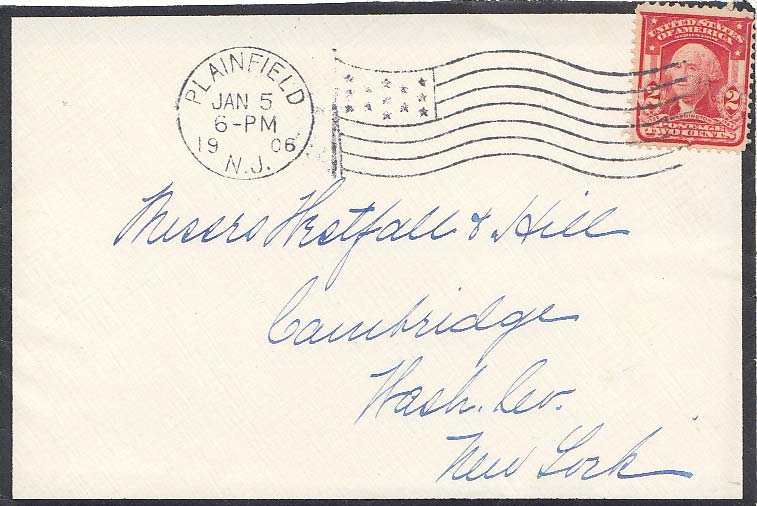 PLAINFIELD
JAN 5
6-PM
19 06
N.J.
UNITED STATES
OF AMERICA
2 2
POSTAGE
TWO CENTS
Messrs Westfall & Hill
Cambridge
Wash. Co.
New York